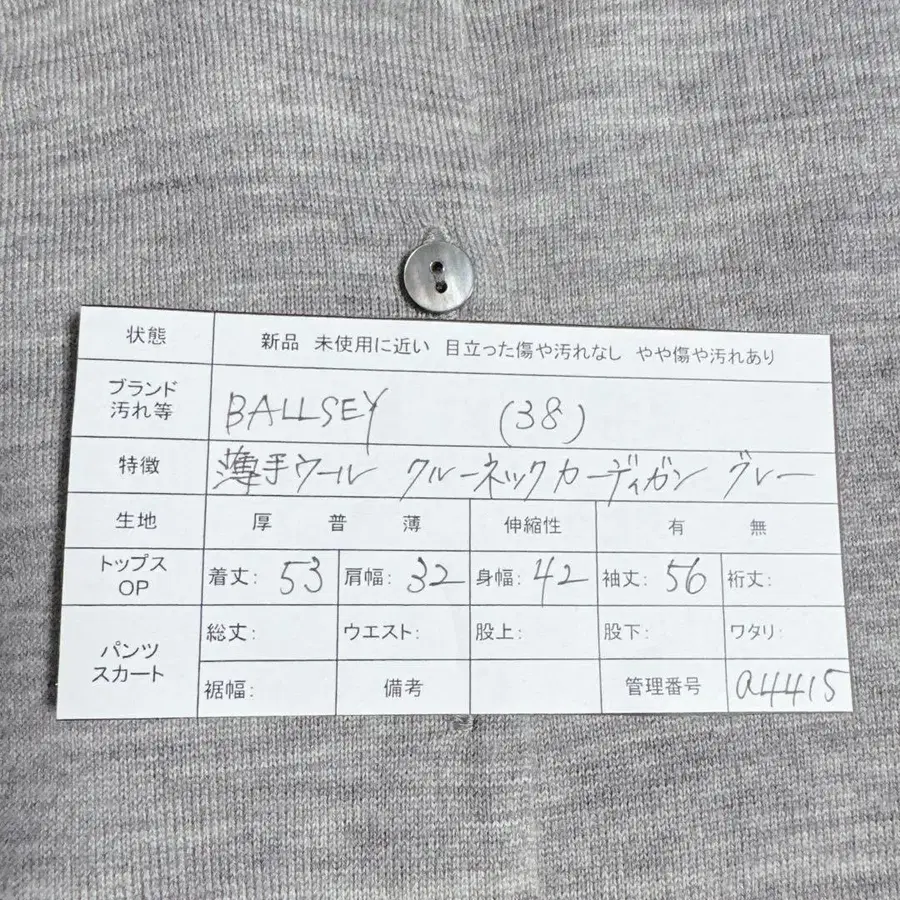 状態 新品 未使用に近い 目立った傷や汚れなし やや傷や汚れあり
ブランド
汚れ等 BALLSEY (38)
特徴 薄手ウール クルーネックカーディガン グレー
生地 厚 普 薄 伸縮性 有 無
トップス
OP 着丈: 53 肩幅: 32 身幅: 42 袖丈: 56 裄丈:
パンツ
スカート 総丈: ウエスト: 股上: 股下: ワタリ:
裾幅: 備考 管理番号 a4415